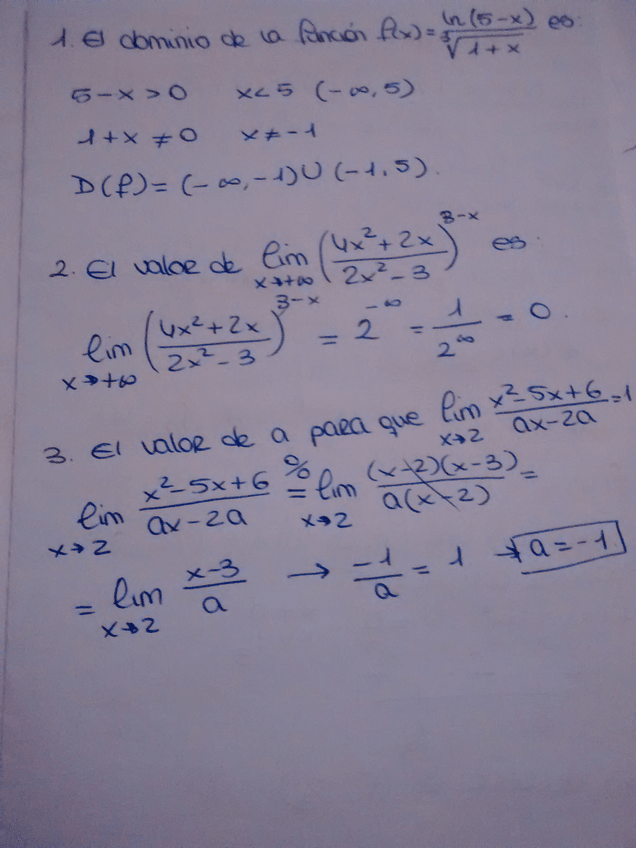 1. El dominio de la función f(x) = ln(5-x) / ∛(1+x) es:
5-x > 0   x < 5   (-∞, 5)
1+x ≠ 0   x ≠ -1
D(f) = (-∞, -1) ∪ (-1, 5).
2. El valor de lim x→+∞ ((4x²+2x)/(2x²-3))^(3-x) es:
lim x→+∞ ((4x²+2x)/(2x²-3))^(3-x) = 2^(-∞) = 1/2^∞ = 0.
3. El valor de a para que lim x→2 (x²-5x+6)/(ax-2a) = 1
lim x→2 (x²-5x+6)/(ax-2a) =^(0/0) lim x→2 (x-2)(x-3)/(a(x-2)) =
= lim x→2 (x-3)/a → -1/a = 1 → a = -1